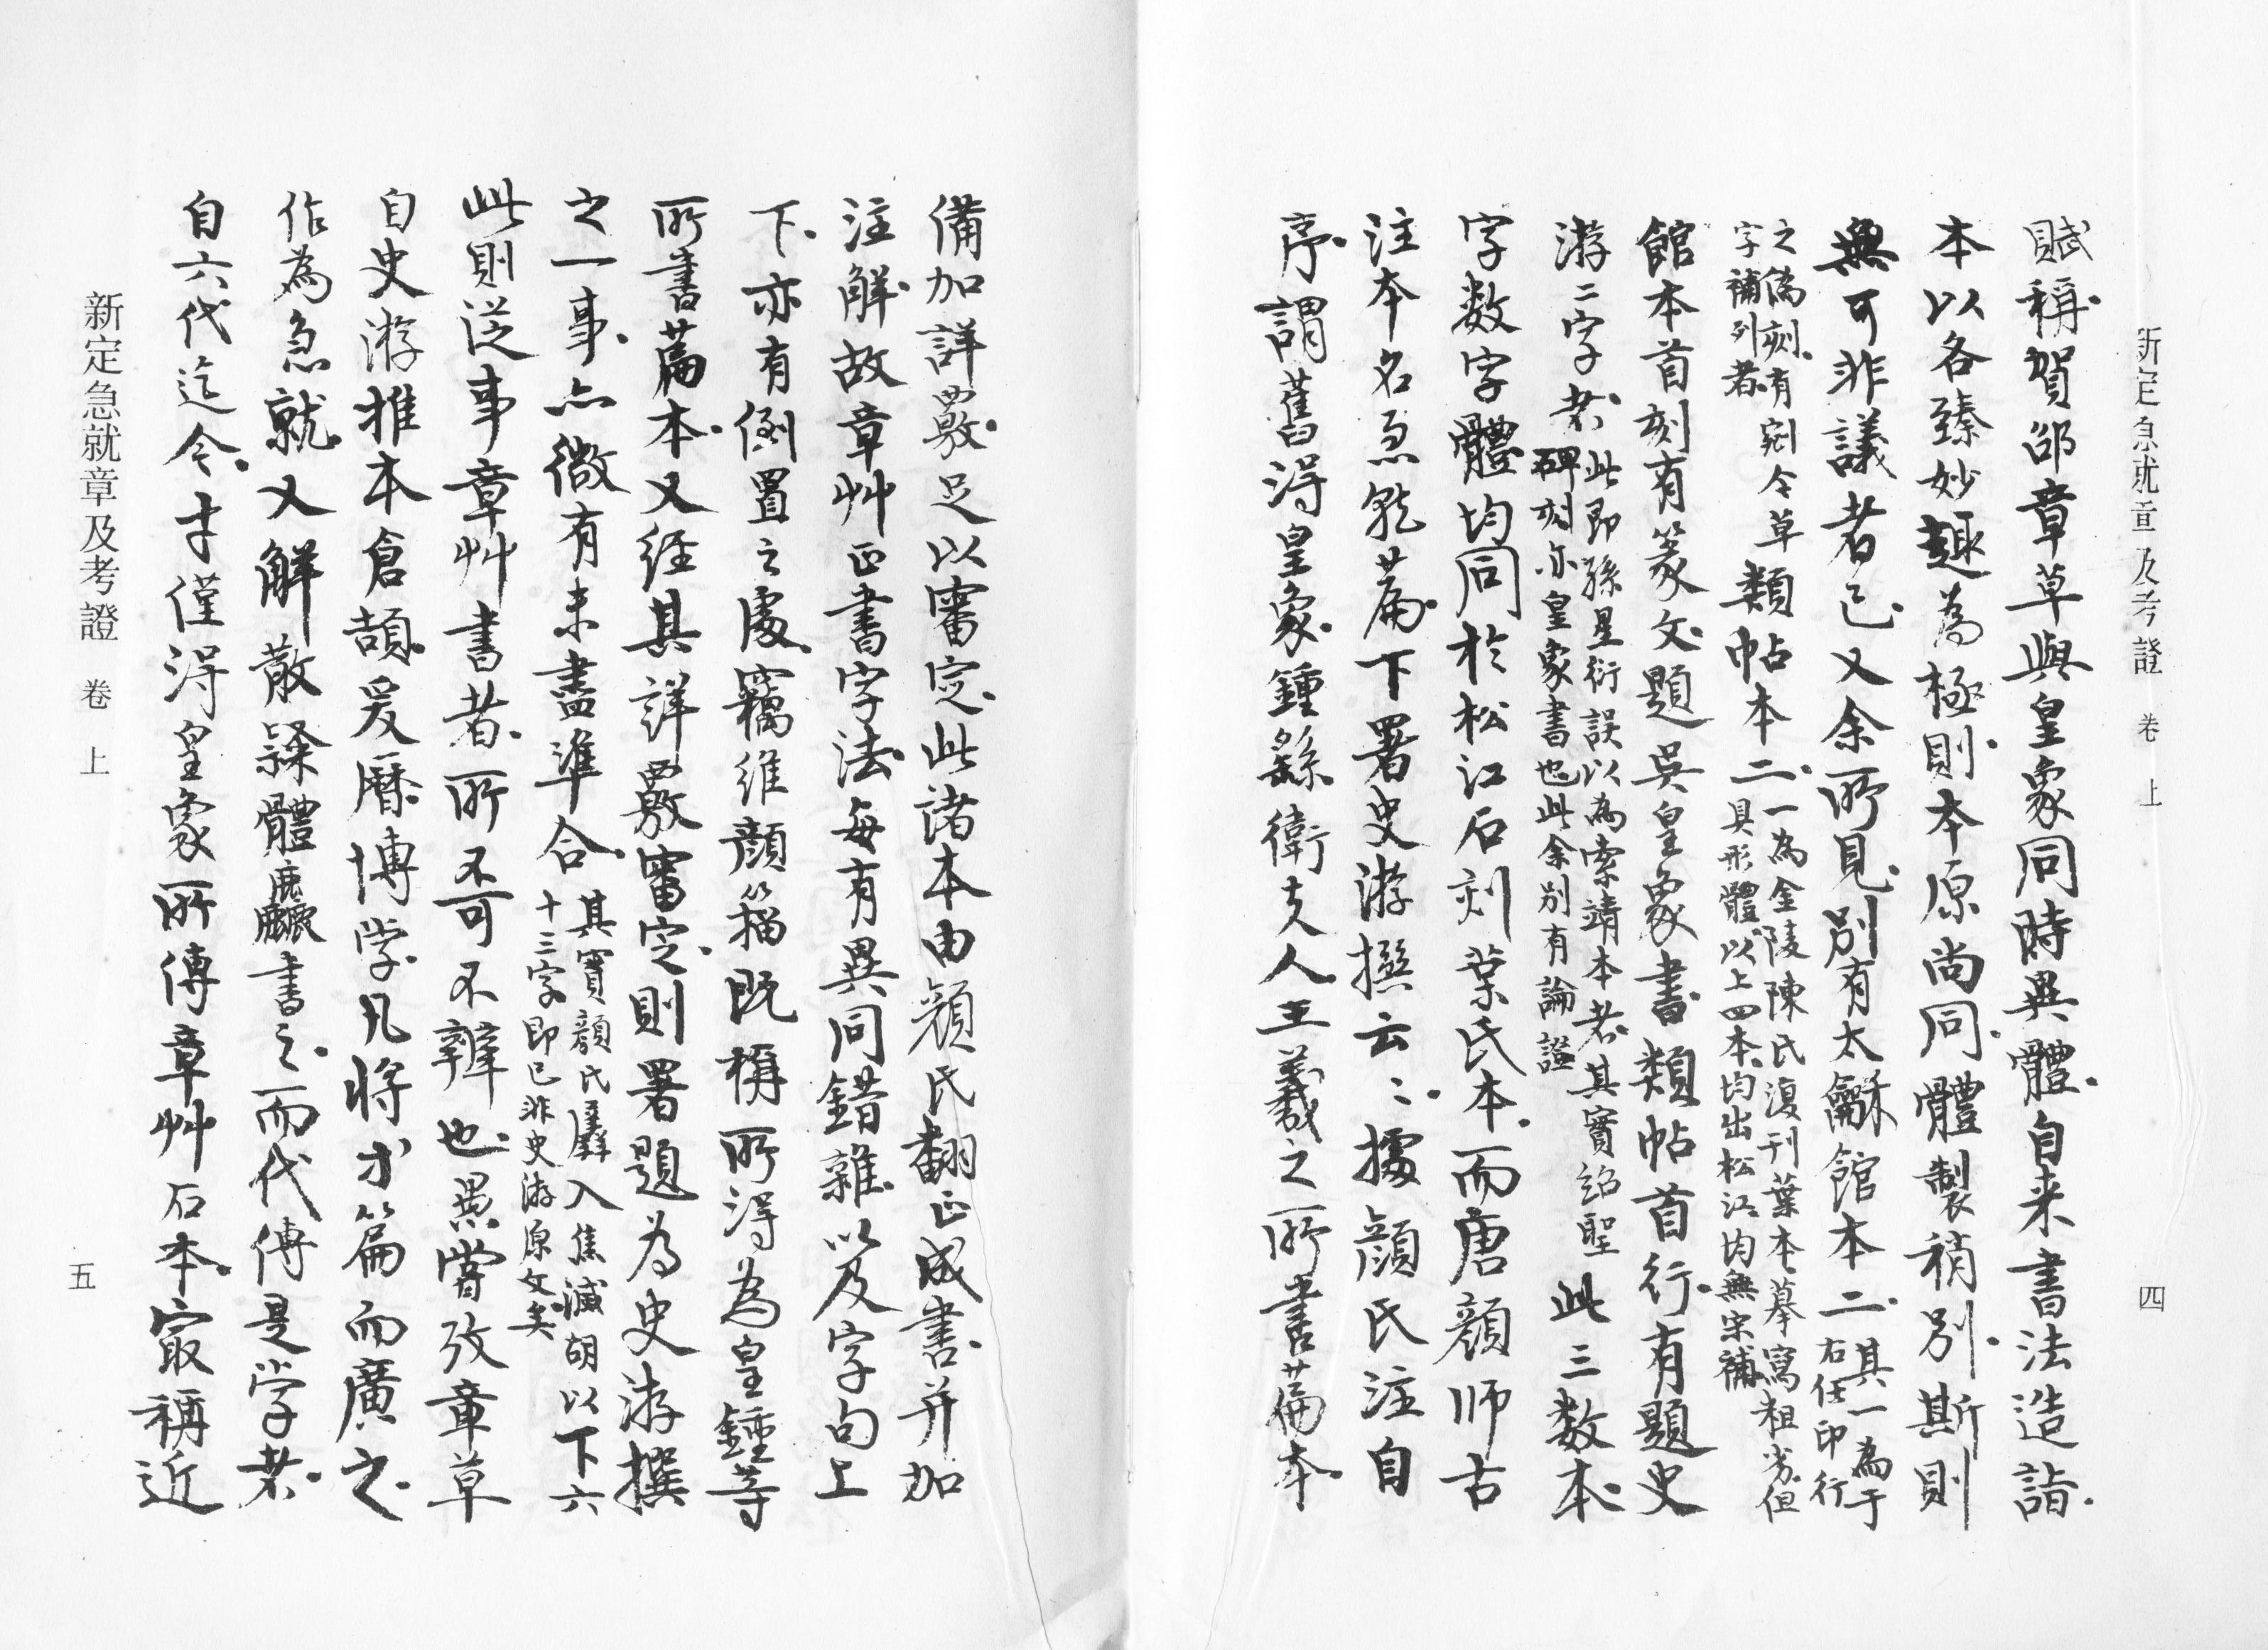 新定急就章及考證 卷上 四
賦稱賀邵章草與皇象同時異體自来書法造詣
本以各臻妙趣為極則本原尚同體製稍別斯則
無可非議者已又余所見別有太龢館本二其一為于
右任印行
之偽刻有剜今草
字補列者類帖本二一為金陵陳氏復刊葉本摹寫粗劣但
具形體以上四本均出松江均無宋補
館本首刻有篆文題吳皇象書類帖首行有題史
游二字者此即孫星衍誤以為索靖本者其實紹聖
碑刻亦皇象書也此余別有論證此三数本
字数字體均同於松江石刻葉氏本而唐顏師古
注本名急就萹下署史游撰云〻據顏氏注自
序謂舊得皇象鍾繇衛夫人王羲之所書萹本
備加詳覈足以審定此諸本由顏氏翻正成書并加
注解故章艸正書字法每有異同錯雜以及字句上
下亦有倒置之處竊維顏籀既稱所得為皇鍾等
所書萹本又經其詳覈審定則署題為史游撰
之一事亦微有未盡準合其實顏氏羼入焦滅胡以下六
十三字即已非史游原文矣
此則泛事章艸書者所不可不辨也愚嘗攷章草
自史游推本倉頡爰曆博学凡將才篇而廣之
作為急就又解散隸體麤書之而代傳是学者
自六代迄今才僅得皇象所傳章艸石本最稱近
新定急就章及考證 卷上 五